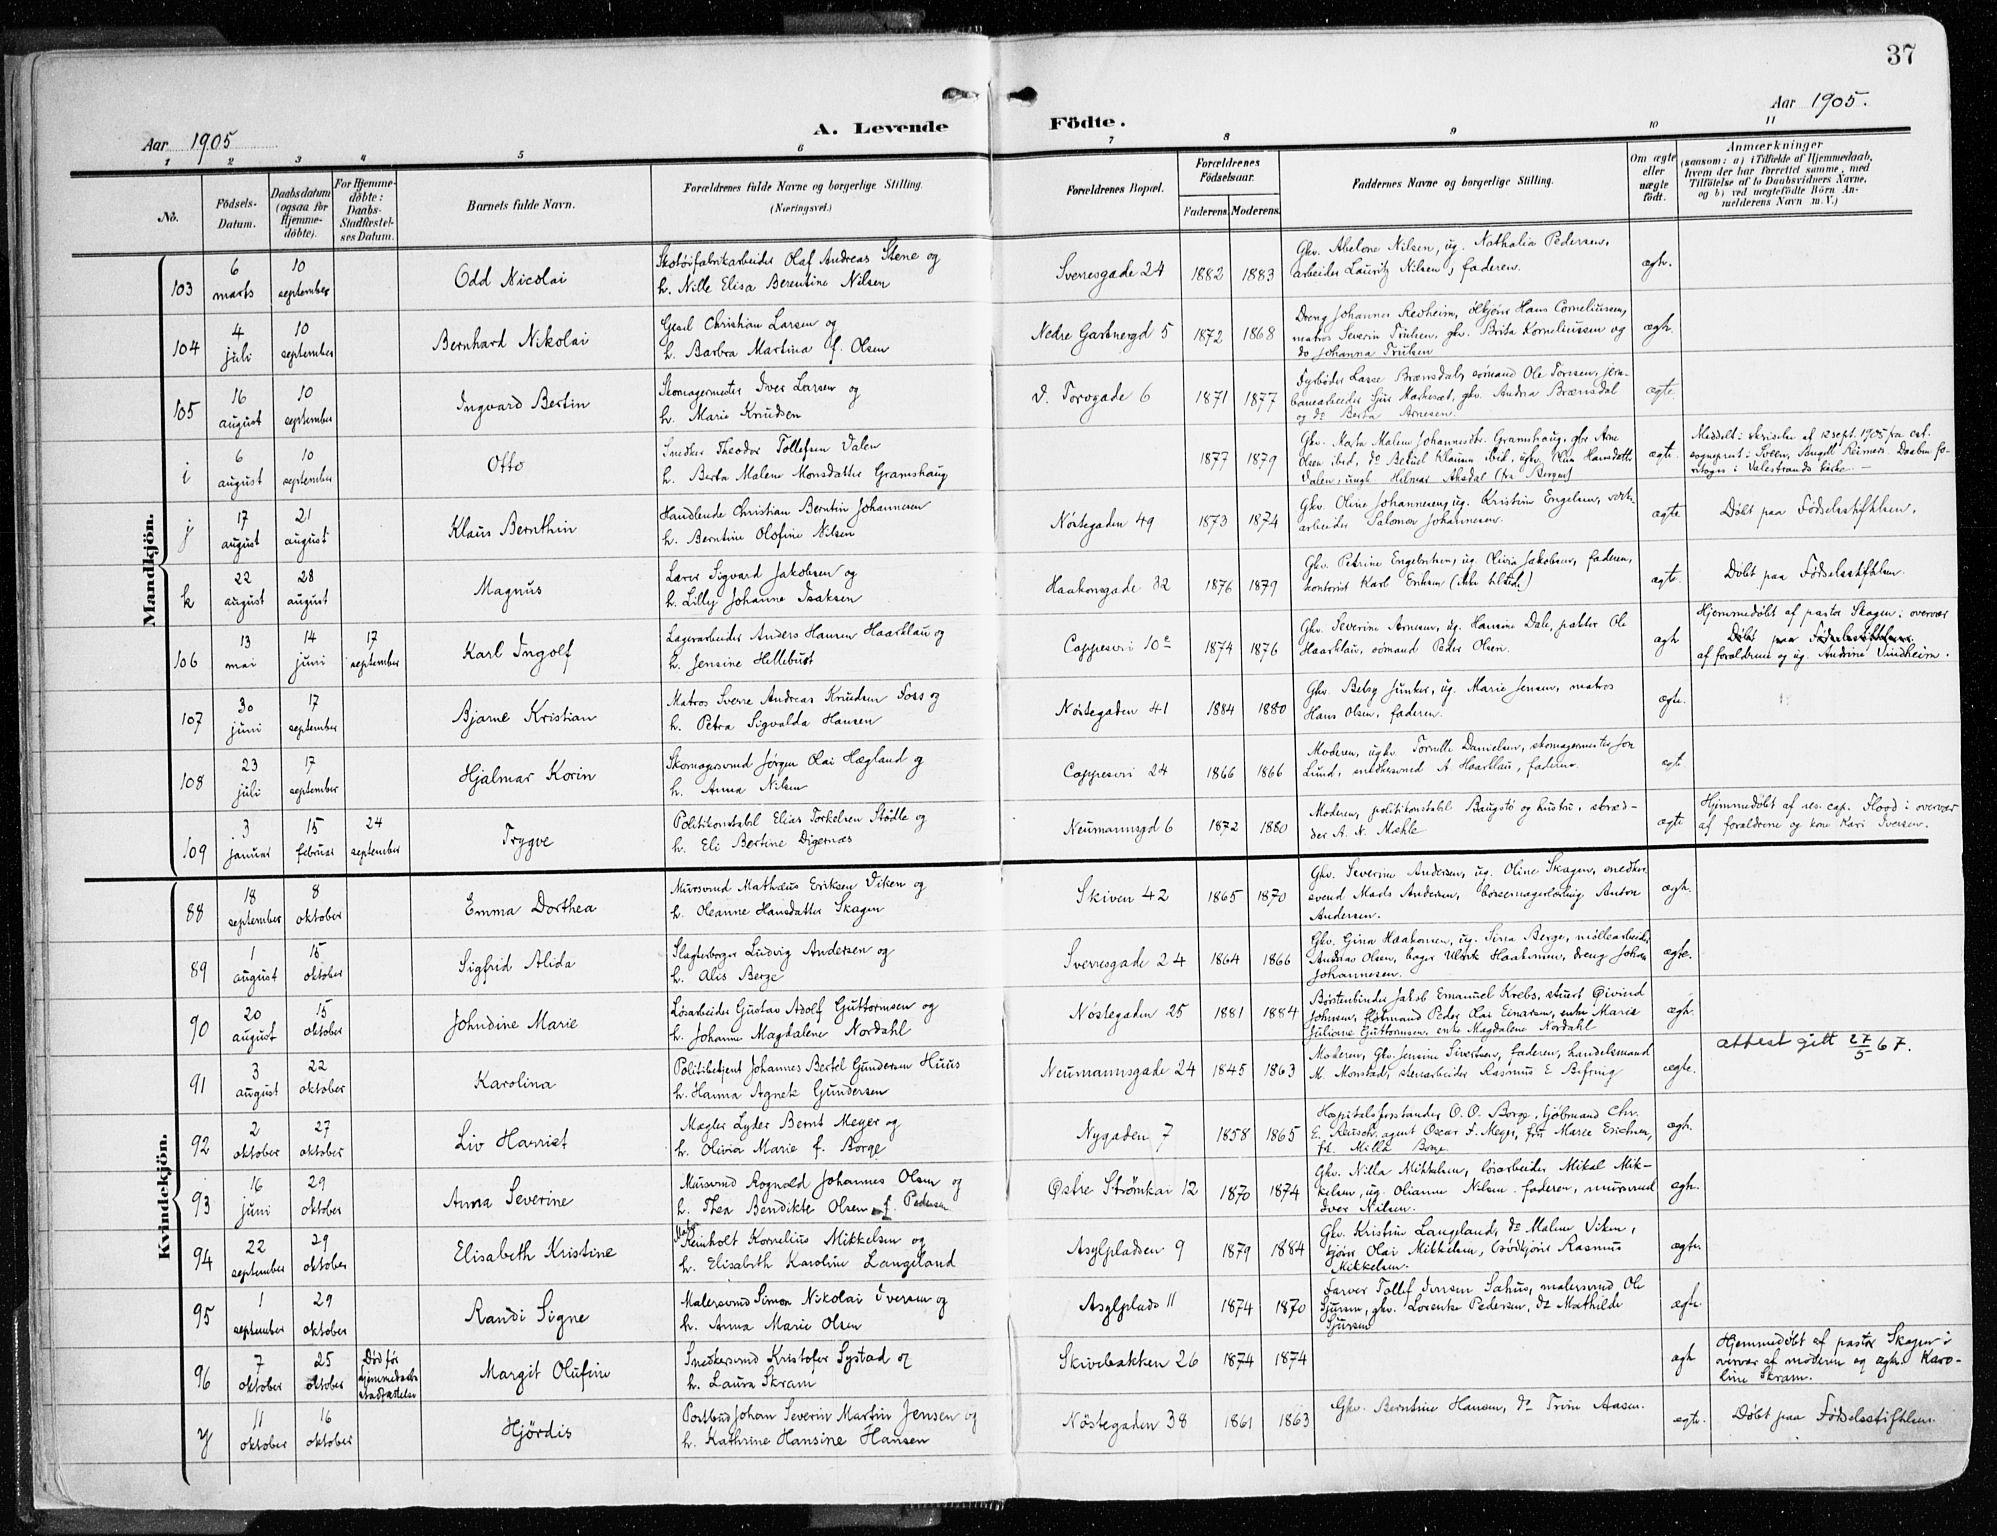 37
Aar 1905
A. Levende
Födte.
Aar 1905.
1 2 3 4 5 6 7 8 9 10 11
No.
Födsels-
Datum.
Daabsdatum
(ogsaa for
Hjemme-
döbte).
For Hjemme-
döbte:
Daabs-
Stadfæstel-
ses Datum.
Barnets fulde Navn.
Forældrenes fulde Navne og borgerlige Stilling.
(Næringsvei.)
Forældrenes Bopæl.
Forældrenes
Födselsaar.
Faderens. Moderens.
Faddernes Navne og borgerlige Stilling.
Om ægte
eller
uægte
födt.
Anmærkninger
(saasom: a) i Tilfælde af Hjemmedaab,
hvem der har forrettet samme, med
Tilföielse af to Daabsvidners Navne,
og b) ved uægtefödte Börn An-
melderens Navn m. V.)
Mandkjön.
103 6 marts 10 september Odd Nicolai
Skotöifabrikarbeider Olaf Andreas Stene og
h. Nille Elisa Berentine Nilsen
Sverresgade 24 1882 1883
Gkv. Abelone Nilsen, ug. Nathalia Pedersen,
arbeider Lauritz Nilsen, faderen. ægte.
104 4 juli 10 september Bernhard Nikolai
Gesel Christian Larsen og
h. Barbra Martina f. Olsen
Nedre Gartnergd 5 1872 1868
Dreng Johannes Redheim, ölkjörer Hans Corneliussen,
matros Severin Trulsen, gkv. Brita Korneliussen og
do Johanna Trulsen ægte.
105 16 august 10 september Ingvard Bertin
Skomagermester Iver Larsen og
h. Marie Knudsen
V. Torvgade 6 1871 1877
Fyrböder Lasse Brænsdal, sömand Ole Tonsen, jern-
banearbeider Sjur , gkv. Andrea Brænsdal
og do Berta Arnesen. ægte.
i 6 august 10 september Otto
Snedker Theodor Tollefsen Valen
h. Berta Malene Monsdatter Gramshaug
1877 1879
Gkv. Marta Malene Johannesdtr. Gramshaug, gbr Arne
Olsen ibid, do ibid, ugkv. Olina Hansdatter
Valen, ungk Hilmar Aksdal (fra Bergen) ægte.
Meddelt i skrivelse af 12 sept. 1905 fra
sogneprest i Sveen, . Daaben fo-
retoges i Valestrands kirke. —
j 17 august 21 august Klaus Bernthin
Handlende Christian Berntin Johannesen
h. Berntine Olofine Nilsen
Nöstegaden 49 1873 1874
Gkv. Oline Johannesen, ug. Kristine Engelsen,
arbeider Salomon Johannesen. ægte
Döbt paa Födselsstiftelsen.
k 22 august 28 august Magnus
Lærer Sigvard Jakobsen og
h. Lilly Johanne Isaksen
Haakonsgade 32 1876 1879
Gkv. Petrine Engebretsen, ug. Olivia Jakobsen, faderen,
kontorist Karl Eriksen (ikke tilstede) ægte.
Döbt paa Födselsstiftelsen.
106 13 mai 14 juni 17 september Karl Ingolf
Lagerarbeider Anders Hansen Haarklau og
h. Jensine Hellebust
Cappesvei 10e 1874 1876
Gkv. Severine Arnesen, ug. Hansine Dale, Ole
Haarklau, sömand Peder Olsen. ægte
Hjemmedöbt af pastor Skagen i overvær
Döbt paa Födselsstiftelsen
af forældrene og ug. Andrine Vindheim.
107 30 juni 17 september Bjarne Kristian
Matros Sverre Andreas Knudsen Foss og
h. Petra Sigvalda Hansen
Nöstegaden 41 1884 1880
Gkv. Betsy Junker, ug. Marie Jensen, matros
Hans Olsen, faderen. ægte.
108 23 juli 17 september Hjalmar Korin
Skomagersvend Jörgen Olai Hægland og
h. Anna Nilsen
Cappesvei 24 1866 1866
Moderen, ugkv. Tomelle Danielsen, skomagermester Jon
Lund, snedkersvend A. Haarklau, faderen. ægte
109 3 januar 15 februar 24 september Trygve
Politikonstabel Elias Torkelsen Stödle og
h. Eli Bertine Digernæs
Neumannsgd 6 1872 1880
Moderen, politikonstabel Baugstö og hustru, skræd-
der A. N. Mæhle ægte
Hjemmedöbt af res. cap. Flood i overvær
af forældrene og kone Kari Iversen.
Kvindekjön.
88 18 september 8 oktober Emma Dorthea
Mursvend Mathæus Eriksen Viken og
h. Oleanne Hansdatter Skagen
Skiven 42 1865 1870
Gkv. Severine Andersen, ug. Oline Skagen, snedker
svend Mads Andersen, börsemagerlærling Anton
Andersen. ægte.
89 1 august 15 oktober Sigfrid Alida
Slagterborger Ludvig Andersen og
h. Alis Berge
Sverresgade 24 1864 1866
Gkv. Gina Haakonsen, ug. Sina Berge, möllearbeider
Andreas Olsen, bager Ulrik Haakonsen, dreng Johan
Johannesen. ægte.
90 20 august 15 oktober Johndine Marie
Lösarbeider Gustav Adolf Guttormsen og
h. Johanne Magdalene Nordahl
Nöstegaden 25 1881 1884
Börstenbinder Jakob Emanuel Krebs, stuert Öivind
Johnsen, flötmand Peder Olai Einarsen, enke Marie
Juliane Guttormsen, enke Magdalene Nordahl ægte.
91 3 august 22 oktober Karolina
Politibetjent Johannes Bertel Gundersen Huus
h. Hanna Agnete Gundersen
Neumannsgade 24 1845 1863
Moderen, Gkv. Jensine Sivertsen, faderen, handelsmand
M. Monstad, stenarbeider Rasmus E. ægte.
attest gitt 27/5 67.
92 2 oktober 27 oktober Liv Harriet
Mægler Lyder Bernt Meyer og
h. Olivia Marie f. Borge
Nygaden 7 1858 1865
Hospitalsforstander O. O. Borge, hjölmand Chr.
E. Reusch, agent Oscar F. Meyer, fru Maree Erichsen,
frk. Milla Borge ægte.
93 16 juni 29 oktober Anna Severine
Mursvend Rognald Johannes Olsen og
h. Thea Bendikte Olsen f. Pedersen
Östre Strömkai 12 1870 1874
Gkv. Nilla Mikkelsen, lösarbeider Mikal Mik-
kelsen, ug. Olianne Nilsen, faderen, mursvend
Iver Nilsen. ægte.
94 22 september 29 oktober Elisabeth Kristine
Reinholt Kornelius Mikkelsen og
h. Elisabeth Karoline Langeland
Asylpladsen 9 1879 1884
Gkv. Kristine Langeland, do Malene Viken,
kjörer Olai Mikkelsen, brödkjörer Rasmus
Mikkelsen. ægte
95 1 september 29 oktober Randi Signe
Malersvend Simon Nikolai Iversen og
h. Anna Marie Olsen
Asylplads 11 1874 1870
Farver Tollef Iversen Sahus, malersvend Ole
Sjursen, gkv. Lorentse Pedersen, do Mathilde
Sjursen ægte.
96 7 oktober 25 oktober Död før hjemmedaabs stadfæstelse Margit Olufine
Snedkersvend Kristofer Systad og
h. Laura Skram
Skivebakken 26 1874 1874 ægte
Hjemmedöbt af pastor Skagen i
overvær af moderen og Karo-
line Skram.
y 11 oktober 16 oktober Hjördis
Postbud Johan Severin Martin Jensen og
h. Kathrine Hansine Hansen
Nöstegaden 38 1861 1863
Gkv. Berntine Hansen, do Trine Aasen. ægte.
Döbt paa Födselsstiftelsen.